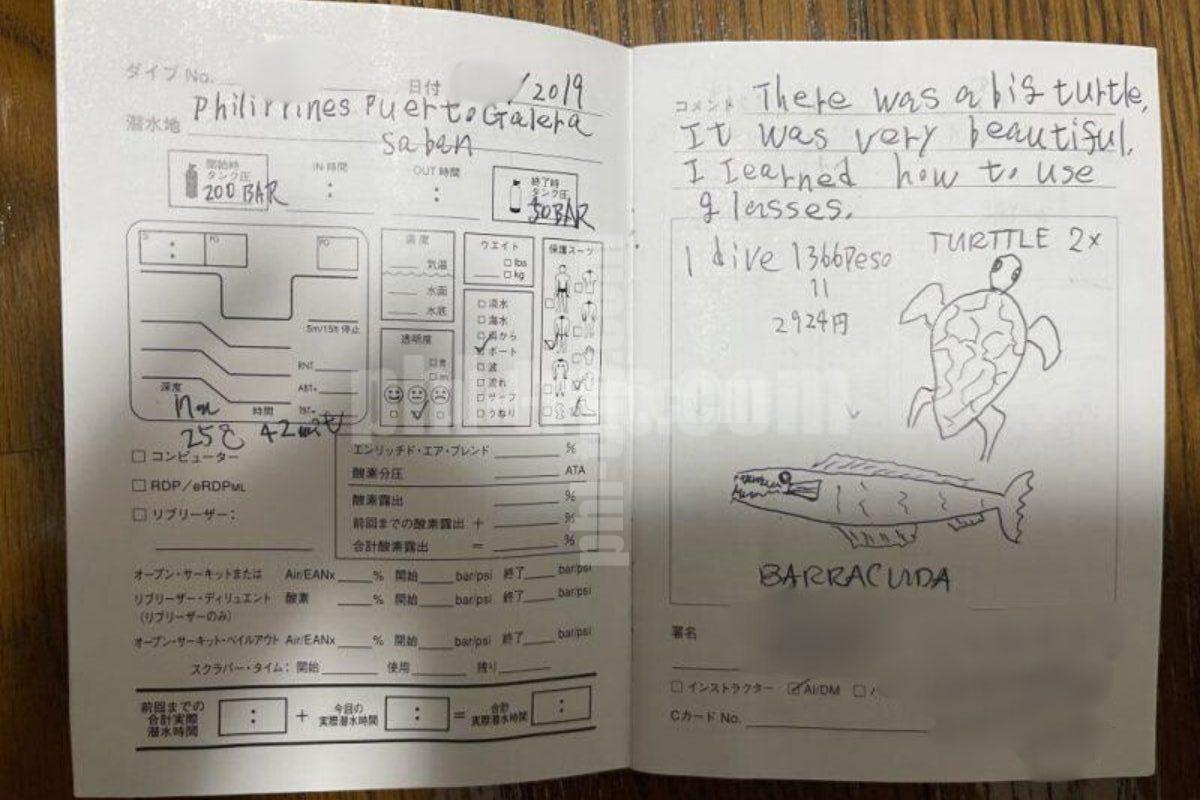 ダイブ No.
日付 /2019
潜水地 Philippines Puerto Galera
Saban
開始時
タンク圧
200 BAR
IN 時間
:
OUT 時間
:
終了時
タンク圧
50BAR
:
PG
PG
5m/15ft 停止
RNT
ABT+
TBT=
深度
時間
25℃
温度
気温
水面
水底
透明度
ウエイト
lbs
kg
淡水
海水
岸から
ボート
波
流れ
サーフ
うねり
保護スーツ
コンピューター
RDP/eRDPML
リブリーザー:
エンリッチド・エア・ブレンド %
酸素分圧 ATA
酸素露出 %
前回までの酸素露出 + %
合計酸素露出 = %
オープン・サーキットまたは Air/EANx % 開始 bar/psi 終了 bar/psi
リブリーザー・ディリュエント 酸素 % 開始 bar/psi 終了 bar/psi
(リブリーザーのみ)
オープン・サーキット・ベイルアウト Air/EANx % 開始 bar/psi 終了 bar/psi
スクラバー・タイム: 開始 使用 残り
前回までの
合計実際
潜水時間
: +
今回の
実際潜水時間
: =
合計
実際潜水時間
:
コメント There was a big turtle.
It was very beautiful.
I Iearned how to use
glasses.
1 dive 1366Peso
11
2924円
TURTTLE 2x
BARRACUDA
署名
インストラクター AI/DM /
Cカード No.